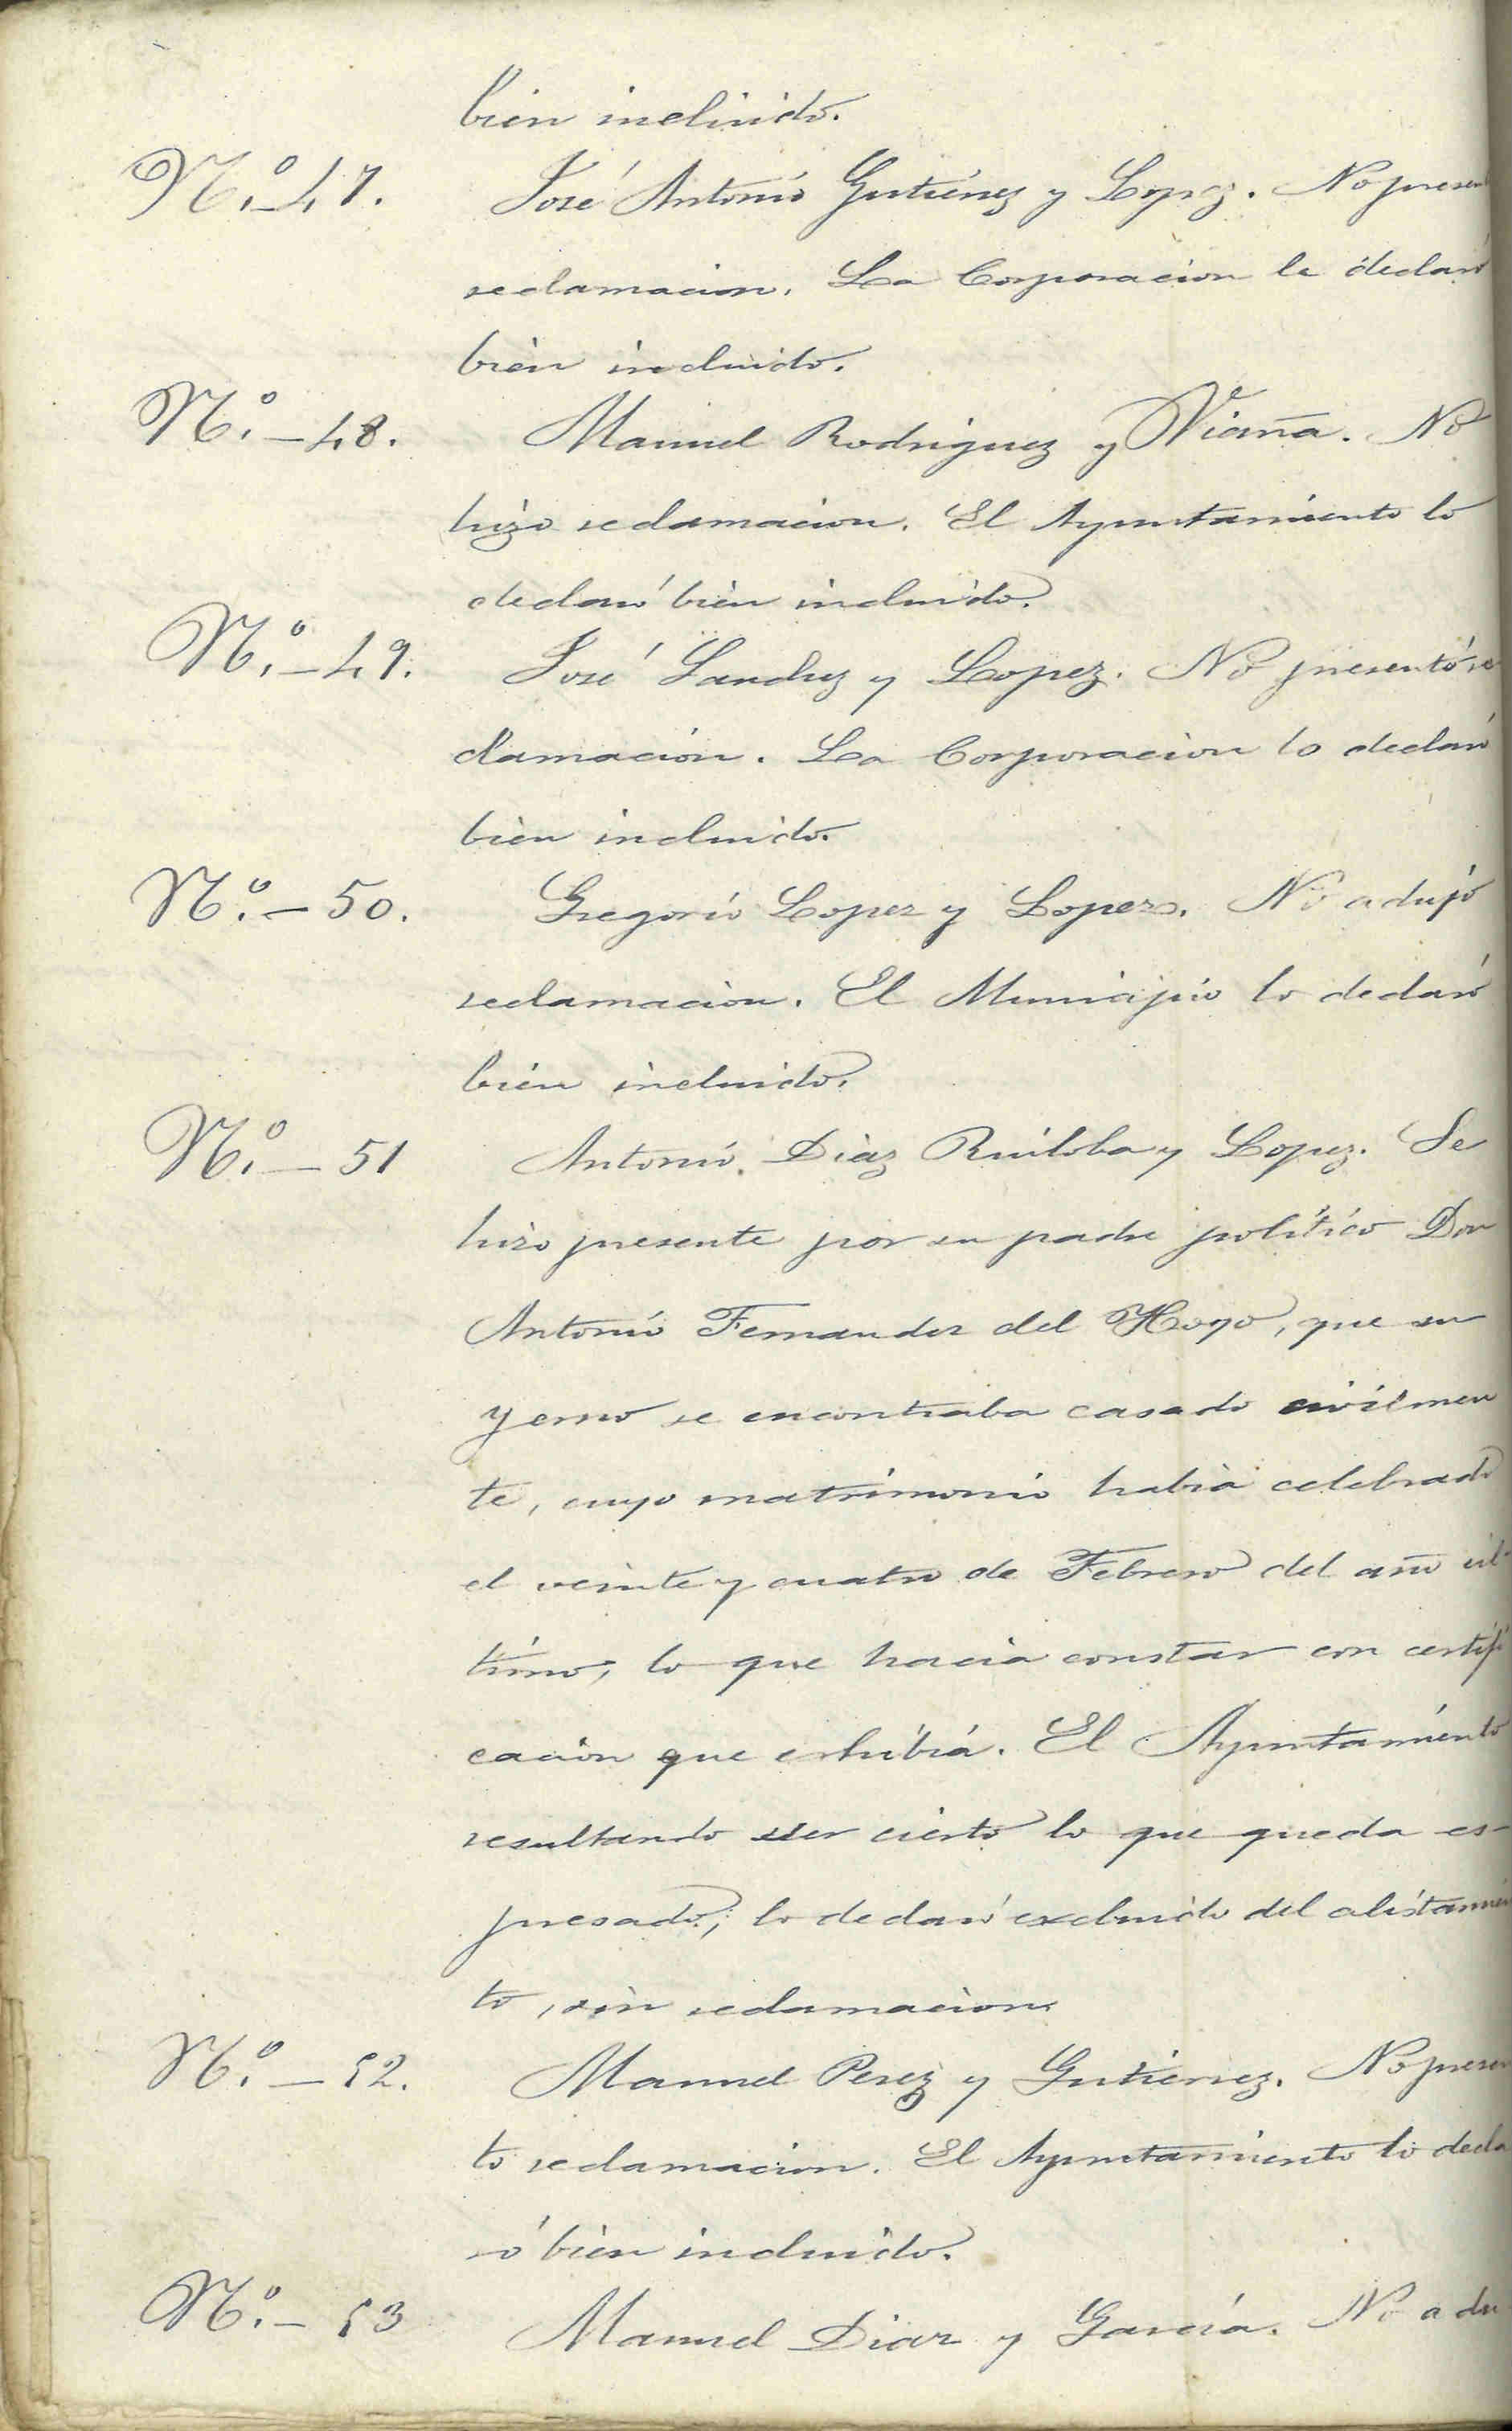 bien incluido.
N.º 47. José Antonio Gutiérrez y Lopez. No presen
reclamacion. La Corporacion le declaró
bien incluido.
N.º – 48. Manuel Rodriguez y Viaña. No
hizo reclamacion. El Ayuntamiento lo
declaró bien incluido.
N.º – 49. José Sanchez y Lopez. No presentó re
clamacion. La Corporacion lo declaró
bien incluido.
N.º – 50. Gregorio Lopez y Lopez. No adujo
reclamacion. El Municipio lo declaró
bien incluido.
N.º – 51 Antonio Diaz Ruiloba y Lopez. Se
hizo presente por su padre político Don
Antonio Fernandez del Hoyo, que su
yerno se encontraba casado civilmen
te, cuyo matrimonio habia celebrado
el veinte y cuatro de Febrero del año úl-
timo, lo que hacia constar con certifi
cación que exhibía. El Ayuntamiento
resultando ser cierto lo que queda es-
presado; lo declaró excluido del alistamien
to, sin reclamacion.
N.º – 52. Manuel Perez y Gutierrez. No presen
to reclamacion. El Ayuntamiento lo decla
ró bien incluido.
N.º – 53 Manuel Diaz y García. No adu